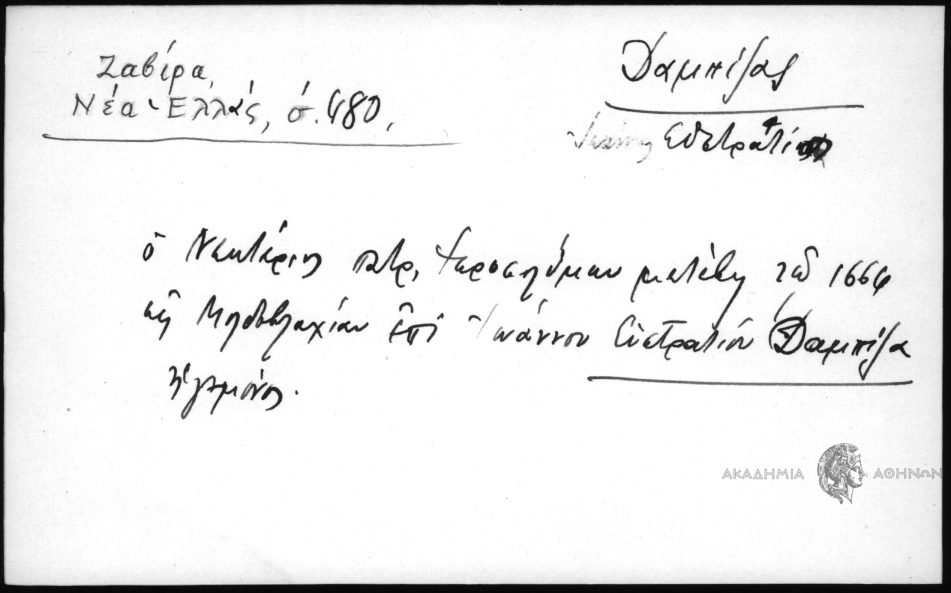 Ζαβίρα,
Νέα Ἑλλάς, σ. 480,
Δαμπίζας
Ἰωάννης Εὐστράτιος
ὁ Νεκτάριος πατρ. Ἱεροσολύμων μετέβη τῷ 1664
εἰς Μολδοβλαχίαν ἐπὶ Ἰωάννου Εὐστρατίου Δαμπίζα
ἡγεμόνος.
ΑΚΑΔΗΜΙΑ ΑΘΗΝΩΝ